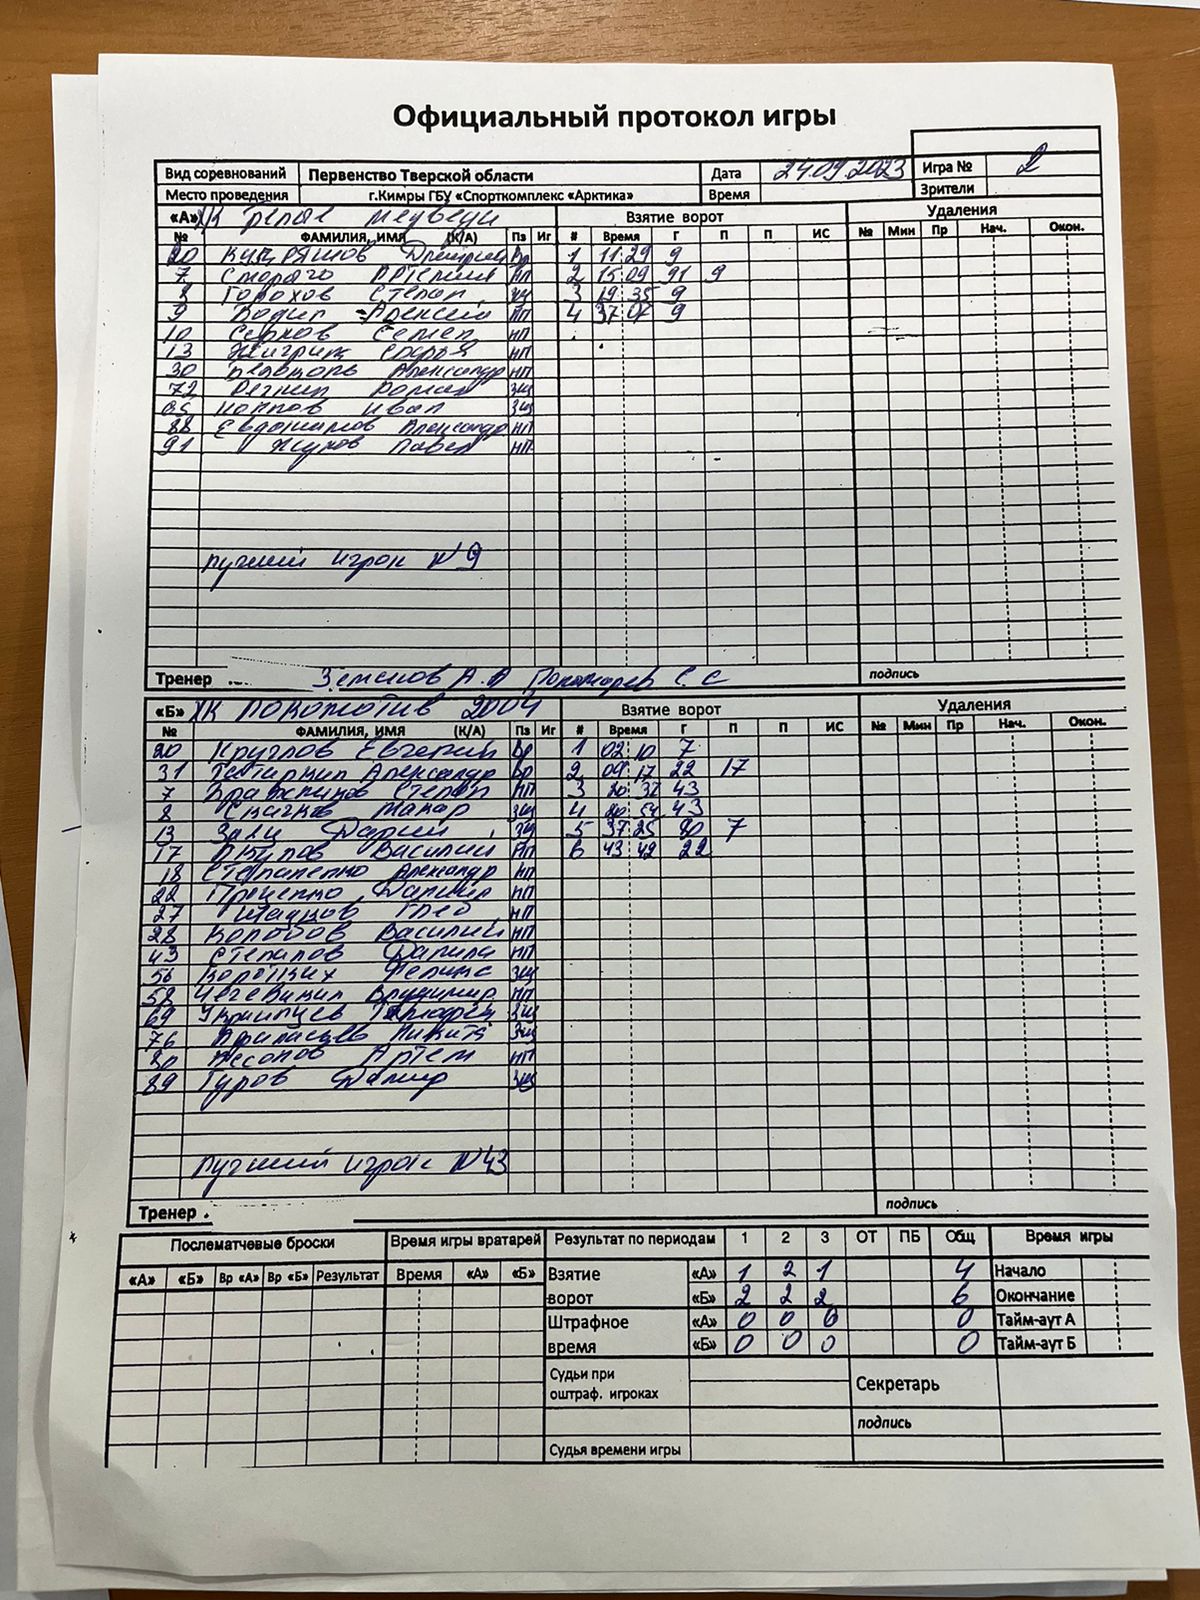 Официальный протокол игры
Вид соревнований Первенство Тверской области Дата 24.09.2023 Игра № 2
Место проведения г.Кимры ГБУ «Спорткомплекс «Арктика» Время Зрители
«А» ХК Белые медведи Взятие ворот Удаления
№ ФАМИЛИЯ, ИМЯ (К/А) Пз Иг # Время Г П П ИС № Мин Пр Нач. Окон.
20 Дмитрий Вр 1 11:29 9
7 Артемий нп 2 15:09 91 9
8 Горохов Степан зщ 3 19:35 9
9 Алексей нп 4 37:07 9
10 Семен нп
13 нп
30 Александр нп
72 Роман зщ
Иван зщ
88 Евдокимов Александр нп
91 Жуков Павел нп
лучший игрок №9
Тренер Земсков А.А Пономарев С.С подпись
«Б» ХК Локомотив 2004 Взятие ворот Удаления
№ ФАМИЛИЯ, ИМЯ (К/А) Пз Иг # Время Г П П ИС № Мин Пр Нач. Окон.
20 Круглов Евгений Вр 1 02:10 7
31 Александр Вр 2 09:17 22 17
7 Степан нп 3 20:37 43
8 Скачков Макар зщ 4 20:54 43
13 Дарий зщ 5 37:25 80 7
17 Акулов Василий нп 6 43:42 22
18 Степаненко Александр нп
22 Проценко Данияр нп
27 Глеб нп
28 Коробов Василий нп
43 Степанов Данила нп
56 Коротких Феликс зщ
58 Владимир нп
69 Украинцев зщ
76 Афанасьев Никита зщ
80 Артем нп
89 Гуров Дамир зщ
лучший игрок №43
Тренер подпись
Послематчевые броски Время игры вратарей Результат по периодам 1 2 3 ОТ ПБ Общ Время игры
«А» «Б» Вр «А» Вр «Б» Результат Время «А» «Б» Взятие «А» 1 2 1 4 Начало
ворот «Б» 2 2 2 6 Окончание
Штрафное «А» 0 0 0 0 Тайм-аут А
время «Б» 0 0 0 0 Тайм-аут Б
Судьи при
оштраф. игроках Секретарь
подпись
Судья времени игры